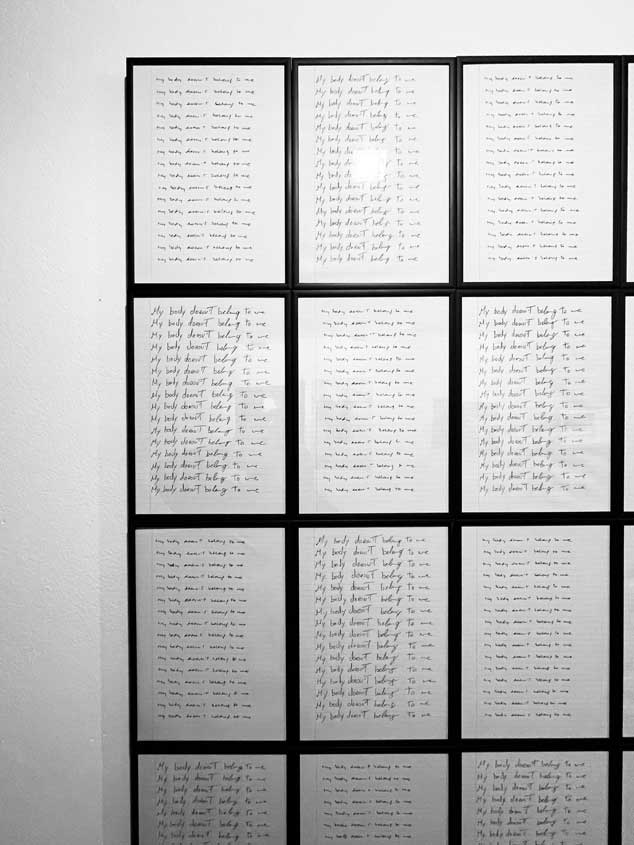 my body doesn't belong to me
my body doesn't belong to me
my body doesn't belong to me
my body doesn't belong to me
my body doesn't belong to me
my body doesn't belong to me
my body doesn't belong to me
my body doesn't belong to me
my body doesn't belong to me
my body doesn't belong to me
my body doesn't belong to me
my body doesn't belong to me
my body doesn't belong to me
my body doesn't belong to me
my body doesn't belong to me
my body doesn't belong to me
My body doesn't belong to me
My body doesn't belong to me
My body doesn't belong to me
My body doesn't belong to me
My body doesn't belong to me
My body doesn't belong to me
My body to me
My body to me
My body to me
My body doesn't belong to me
My body doesn't belong to me
My body doesn't belong to me
My body doesn't belong to me
My body doesn't belong to me
My body doesn't belong to me
My body doesn't belong to me
my body doesn't belong to me
my body doesn't belong to me
my body doesn't belong to me
my body doesn't belong to me
my body doesn't belong to me
my body doesn't belong to me
my body doesn't belong to me
my body doesn't belong to me
my body doesn't belong to me
my body doesn't belong to me
my body doesn't belong to me
my body doesn't belong to me
my body doesn't belong to me
my body doesn't belong to me
my body doesn't belong to me
my body doesn't belong to me
My body doesn't belong to me
My body doesn't belong to me
My body doesn't belong to me
My body doesn't belong to me
My body doesn't belong to me
My body doesn't belong to me
My body doesn't belong to me
My body doesn't belong to me
My body doesn't belong to me
My body doesn't belong to me
My body doesn't belong to me
My body doesn't belong to me
My body doesn't belong to me
My body doesn't belong to me
My body doesn't belong to me
My body doesn't belong to me
my body doesn't belong to me
my body doesn't belong to me
my body doesn't belong to me
my body doesn't belong to me
my body doesn't belong to me
my body doesn't belong to me
my body doesn't belong to me
my body doesn't belong to me
my body doesn't belong to me
my body doesn't belong to me
my body doesn't belong to me
my body doesn't belong to me
my body doesn't belong to me
my body doesn't belong to me
my body doesn't belong to me
my body doesn't belong to me
My body doesn't belong to me
My body doesn't belong to me
My body doesn't belong to me
My body doesn't belong to me
My body doesn't belong to me
My body doesn't belong to me
My body doesn't belong to me
My body doesn't belong to me
My body doesn't belong to me
My body doesn't belong to me
My body doesn't belong to me
My body doesn't belong to me
My body doesn't belong to me
My body doesn't belong to me
My body doesn't belong to me
My body doesn't belong to me
my body doesn't belong to me
my body doesn't belong to me
my body doesn't belong to me
my body doesn't belong to me
my body doesn't belong to me
my body doesn't belong to me
my body doesn't belong to me
my body doesn't belong to me
my body doesn't belong to me
my body doesn't belong to me
my body doesn't belong to me
my body doesn't belong to me
my body doesn't belong to me
my body doesn't belong to me
my body doesn't belong to me
my body doesn't belong to me
My body doesn't belong to me
My body doesn't belong to me
My body doesn't belong to me
My body doesn't belong to me
My body doesn't belong to me
My body doesn't belong to me
My body doesn't belong to me
My body doesn't belong to me
My body doesn't belong to me
My body doesn't belong to me
My body doesn't belong to me
My body doesn't belong to me
My body doesn't belong to me
My body doesn't belong to me
My body doesn't belong to me
My body doesn't belong to me
my body doesn't belong to me
my body doesn't belong to me
my body doesn't belong to me
my body doesn't belong to me
my body doesn't belong to me
my body doesn't belong to me
my body doesn't belong to me
my body doesn't belong to me
my body doesn't belong to me
my body doesn't belong to me
my body doesn't belong to me
my body doesn't belong to me
my body doesn't belong to me
my body doesn't belong to me
my body doesn't belong to me
my body doesn't belong to me
My body doesn't belong to me
My body doesn't belong to me
My body doesn't belong to me
My body doesn't belong to me
My body doesn't belong to me
My body doesn't belong to me
My body doesn't belong to me
my body doesn't belong to me
my body doesn't belong to me
my body doesn't belong to me
my body doesn't belong to me
my body doesn't belong to me
my body doesn't belong to me
my body doesn't belong to me
My body doesn't belong to me
My body doesn't belong to me
My body doesn't belong to me
My body doesn't belong to me
My body doesn't belong to me
My body doesn't belong to me
My body doesn't belong to me